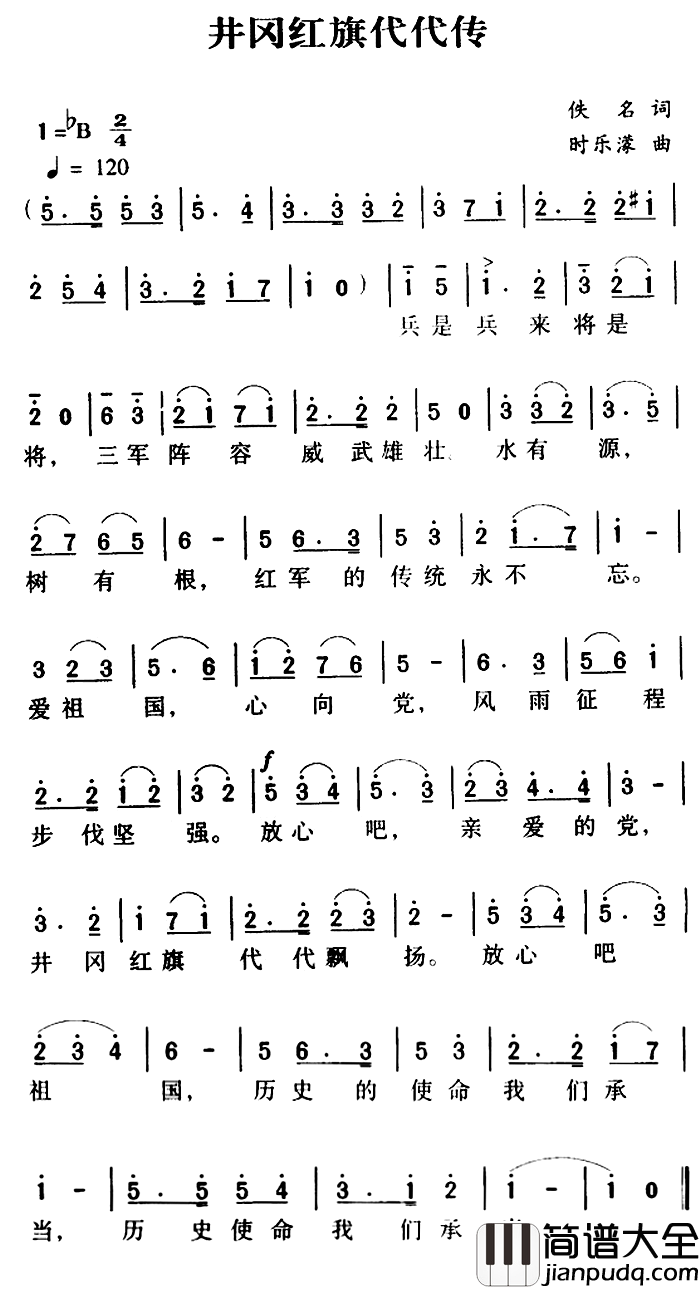 井冈红旗代代传
1=♭B 2/4
佚名词
时乐濛曲
♩= 120
(5. 5 5 3 | 5. 4 | 3. 3 3 2 | 3 7 1 | 2. 2 2 #1 |
2 5 4 | 3. 2 1 7 | 1 0 ) | 1 5 | 1. 2 | 3 2 1 |
兵是兵来将是
2 0 | 6 3 | 2 1 7 1 | 2. 2 2 | 5 0 | 3 3 2 | 3. 5 |
将，三军阵容威武雄壮、水有源，
2 7 6 5 | 6 - | 5 6. 3 | 5 3 | 2 1. 7 | 1 - |
树有根，红军的传统永不忘。
3 2 3 | 5. 6 | 1 2 7 6 | 5 - | 6. 3 | 5 6 1 |
爱祖国，心向党，风雨征程
2. 2 1 2 | 3 2 | f 5 3 4 | 5. 3 | 2 3 4. 4 | 3 - |
步伐坚强。放心吧，亲爱的党，
3. 2 | 1 7 1 | 2. 2 2 3 | 2 - | 5 3 4 | 5. 3 |
井冈红旗代代飘扬。放心吧
2 3 4 | 6 - | 5 6. 3 | 5 3 | 2. 2 | 1 7 |
祖国，历史的使命我们承
1 - | 5. 5 5 4 | 3. 1 2 | 1 - | 1 0 ‖
当，历史使命我们承
简谱大全
jianpudq.com